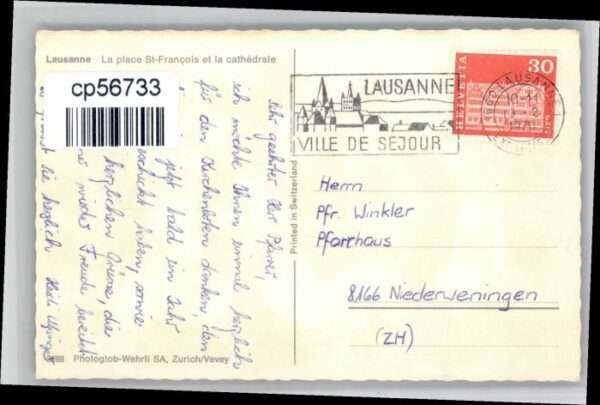 Lausanne La place St-François et la cathédrale
cp56733
Sehr geehrter Herr Pfarrer,
ich möchte Ihnen einmal herzlich
für den Kirchenboten danken, den
jetzt bald ein Jahr
geschickt haben, sowie
herzlichen Grüsse, die
mir wieder Freude bereitet
Sie herzlich Heidi
Photoglob-Wehrli SA, Zurich/Vevey
Printed in Switzerland
LAUSANNE
VILLE DE SEJOUR
HELVETIA
30
LAUSANNE
Herrn
Pfr. Winkler
Pfarrhaus
8166 Niederweningen
(ZH)